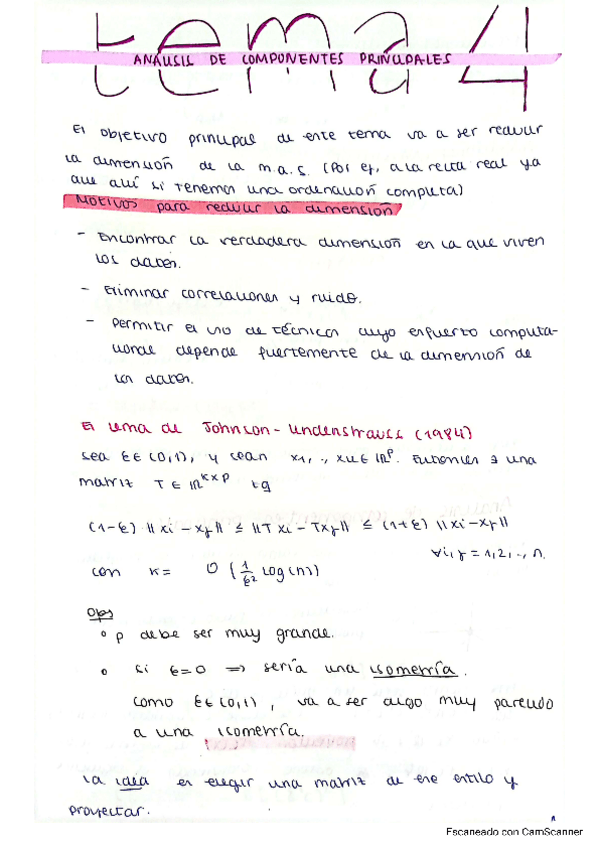 tema 4
ANÁLISIS DE COMPONENTES PRINCIPALES
El objetivo principal de este tema va a ser reducir
la dimensión de la m.a.s. (Por ej, a la recta real ya
que allí si tenemos una ordenación completa)
Motivos para reducir la dimensión
- Encontrar la verdadera dimensión en la que viven
los datos.
- Eliminar correlaciones y ruido.
- Permitir el uso de técnicas cuyo esfuerzo computa-
cional depende fuertemente de la dimensión de
los datos.
El lema de Johnson-Lindenstrauss (1984)
Sea ε∈(0,1), y sean x1, ., xn ∈ ℝᵖ. Entonces ∃ una
matriz T ∈ ℝᵏˣᵖ tq
(1-ε) ||xi - xj|| ≤ ||Txi - Txj|| ≤ (1+ε) ||xi - xj||
∀i,j = 1,2,., n.
con k = O (1/ε² log(n))
Obs
° p debe ser muy grande.
° si ε=0 ⇒ sería una isometría.
como ε∈(0,1), va a ser algo muy parecido
a una isometría.
La idea es elegir una matriz de ese estilo y
proyectar.
1
Escaneado con CamScanner